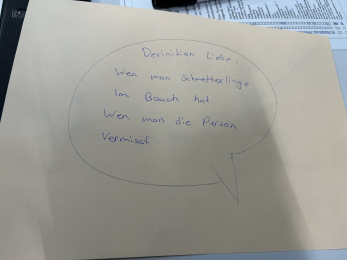 Devinition Liebe.
Wen man Schmetterlinge
Im Bauch hat.
Wen man die Person
vermisst.